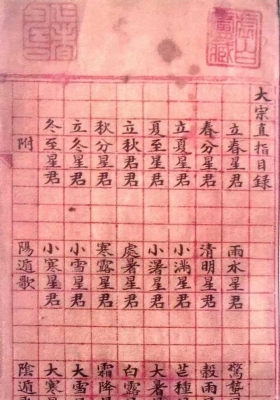 大宗直指目錄
立春星君 雨水星君 驚蟄
春分星君 清明星君 穀雨
立夏星君 小滿星君 芒種
夏至星君 小暑星君 大者
立秋星君 處暑星君 白露
秋分星君 寒露星君 霜降
立冬星君 小雪星君 大雪
冬至星君 小寒星君 大寒
附 陽遁歌 陰遁